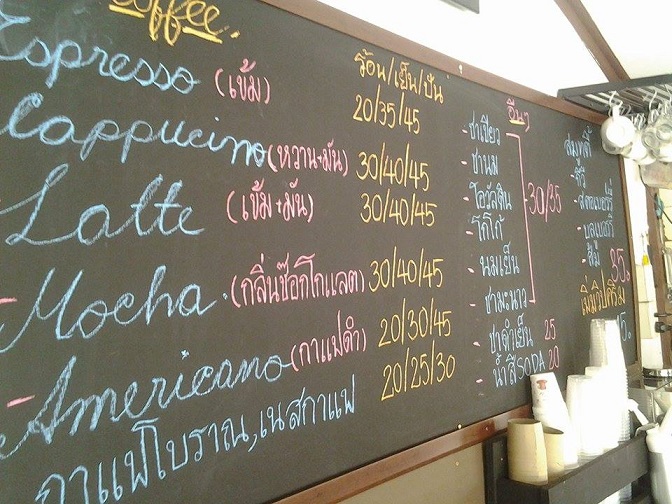 Coffee.
ร้อน/เย็น/ปั่น
Espresso (เข้ม) 20/35/45
Cappucino (หวาน+มัน) 30/40/45
Latte (เข้ม+มัน) 30/40/45
Mocha (กลิ่นช๊อกโกแลต) 30/40/45
Americano (กาแฟดำ) 20/30/45
กาแฟโบราณ,เนสกาแฟ 20/25/30
อื่นๆ
- ชาเขียว
- ชานม
- โอวัลติน
- โกโก้
- นมเย็น
- ชามะนาว
30/35
- ชาดำเย็น 25
- น้ำสีSODA 20
สมูทตี้
- กีวี่
- สตอเบอรี่
- บลูเบอรี่
- ลิ้นจี่
35.
เพิ่มวิปครีม